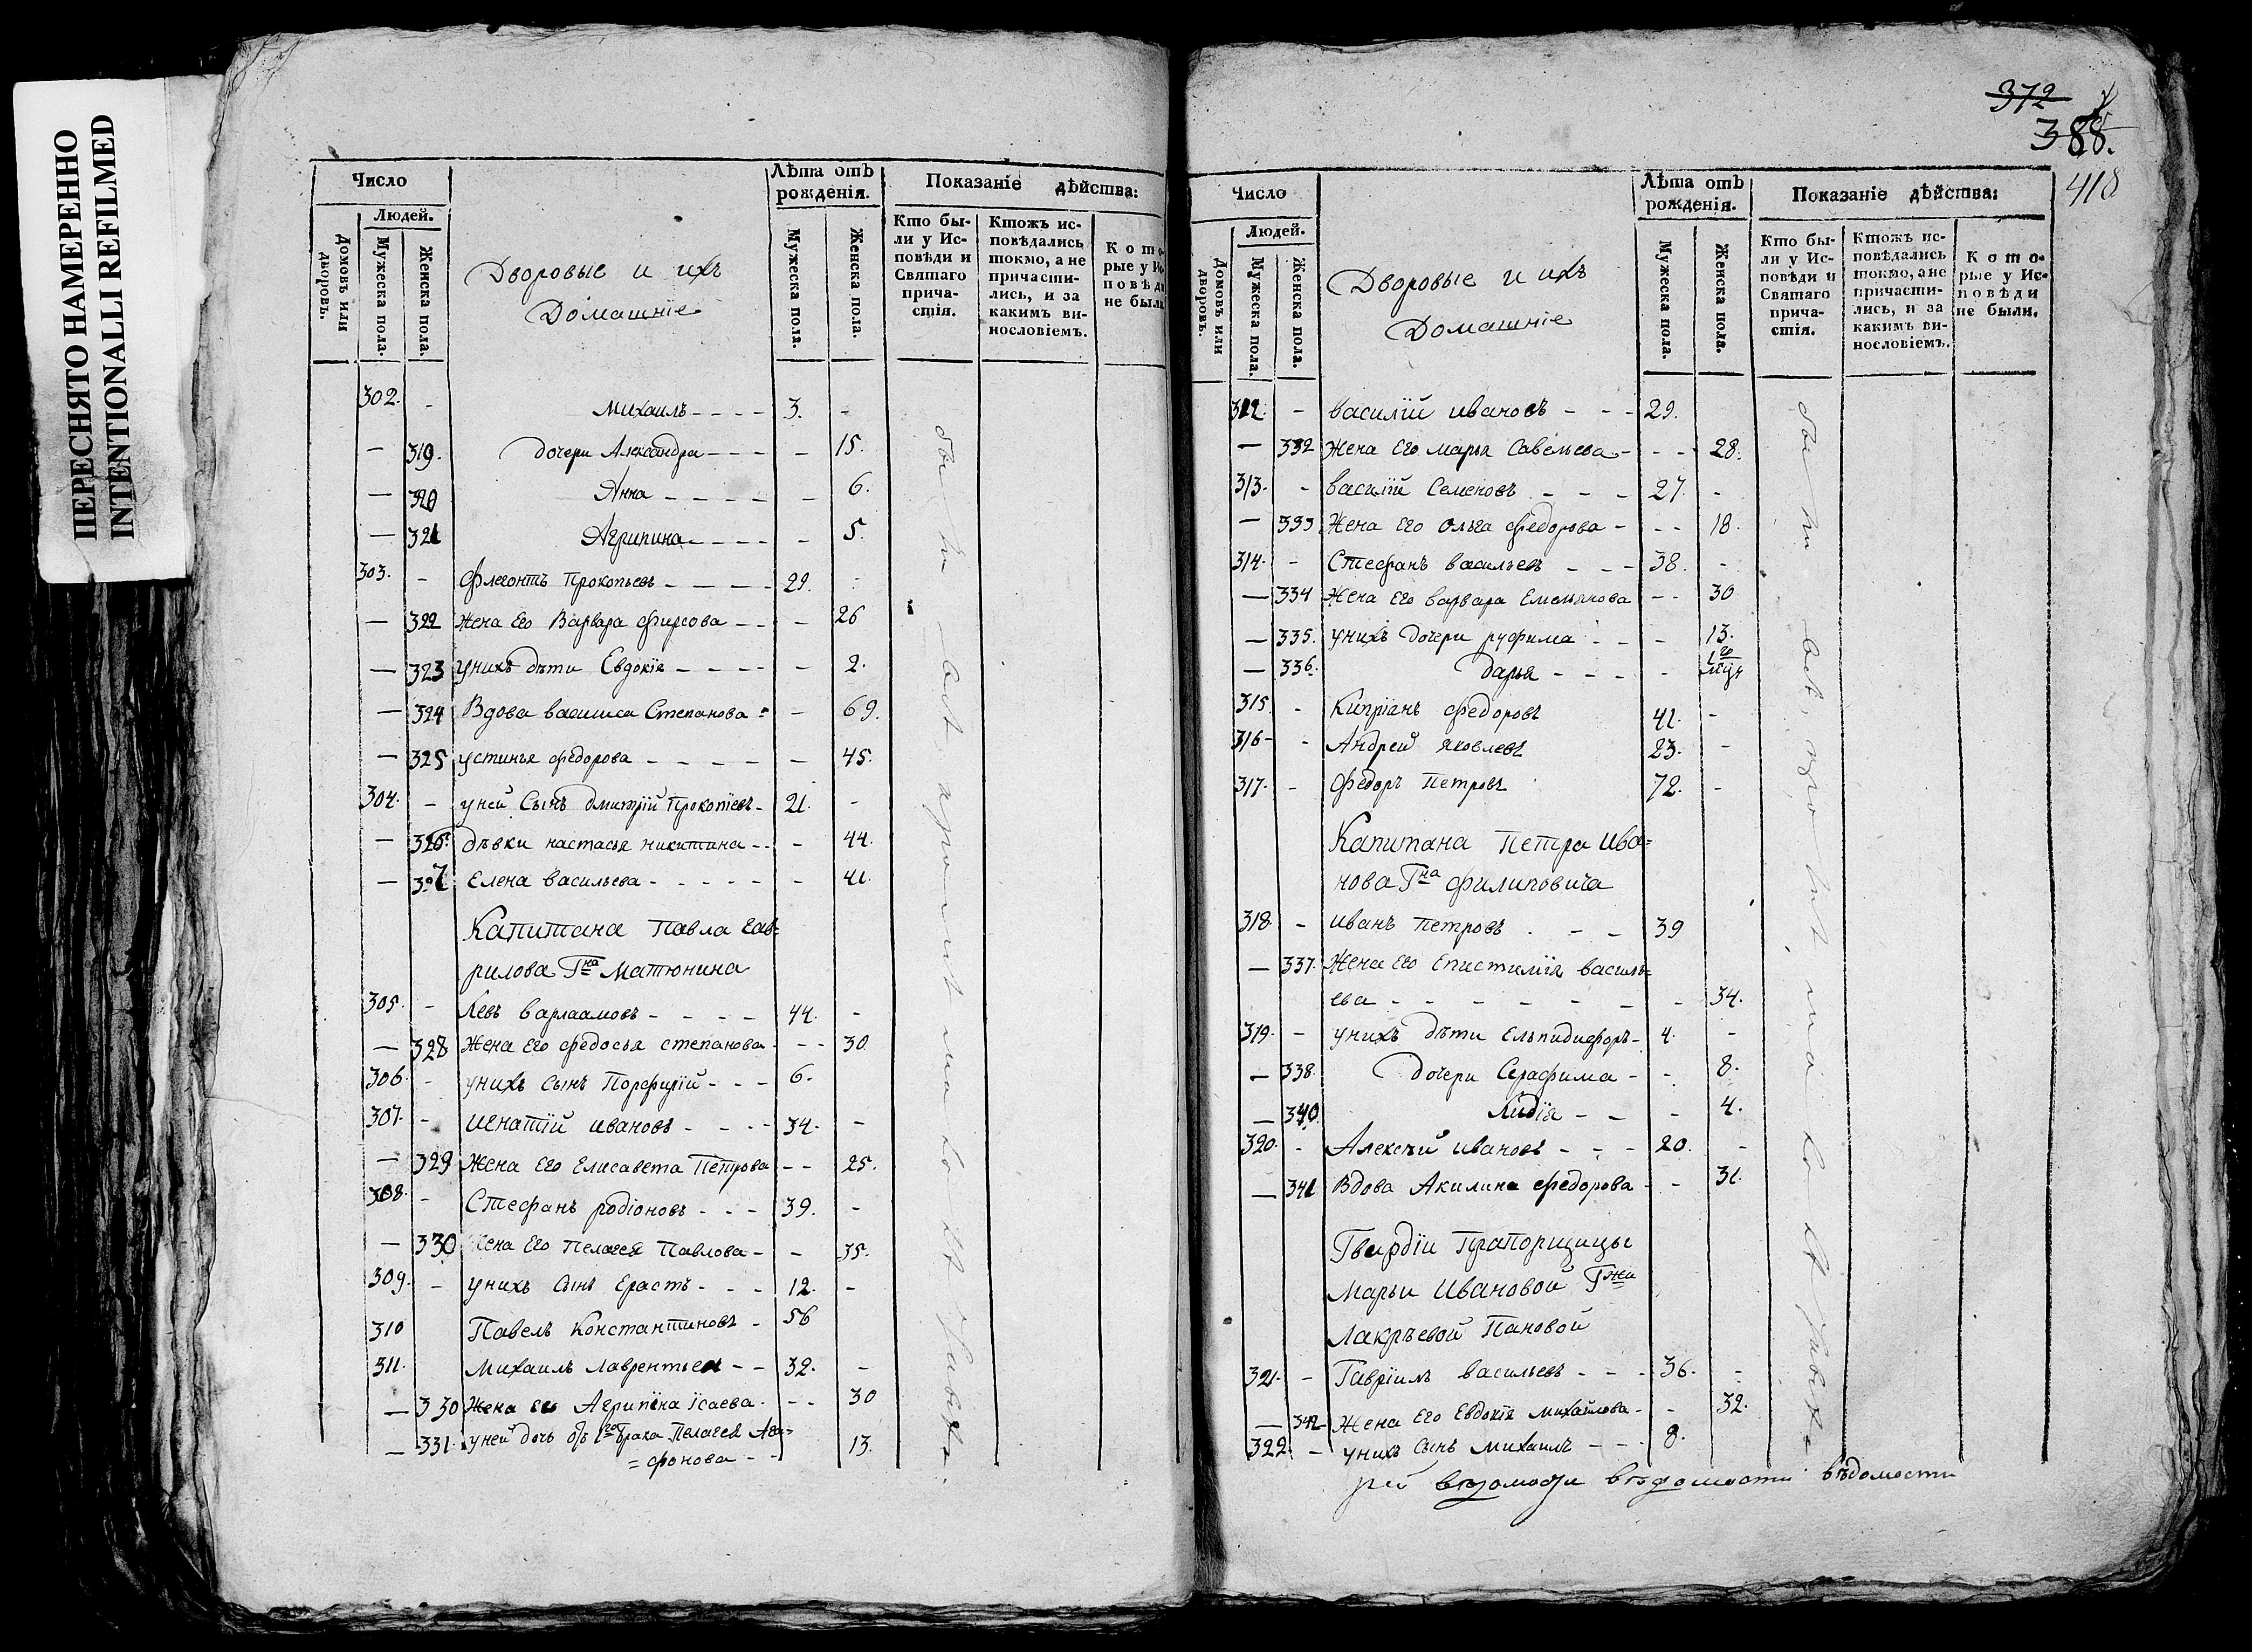 ПЕРЕСНЯТО НАМЕРЕННО
INTENTIONALLI REFILMED
Число
Людей.
Домовъ или дворовъ.
Мужеска пола.
Женска пола.
Дворовые и ихъ
Домашніе
Лѣта отъ рожденія.
Мужеска пола.
Женска пола.
Показаніе дѣйства:
Кто бы-
ли у Ис-
повѣди и
Святаго
прича-
стія.
Ктожъ ис-
повѣдались
токмо, а не
причасти-
лись, и за
какимъ ви-
нословіемъ.
Кото-
рые у Ис-
повѣди
не были
302. - Михаилъ - - - - 3. -
- 319. дочери Александра - - - - 15.
- 320 Анна - - - - - 6.
- 321 Агрипина - - - - - 5.
303. - Флегонтъ Прокопьевъ - - - - 29. -
- 322 Жена Его Варвара Фирсова - - - 26
- 323 унихъ дѣти Евдокіа - - - - - 2.
- 324 Вдова василиса Степанова - - 69.
- 325 устинья федорова - - - - - 45.
304. - уней Сынъ дмитрій Прокопіевъ - 21. -
- 326. дѣвки настасья никитина - - - 44.
- 327 Елена васильева - - - - - - 41.
Капитана Павла Гав=
рилова Гна Матюнина
305. - Левъ варлаамовъ - - - - 44. -
- 328 Жена Его федосья степанова - - - 30
306. - унихъ Сынъ Порфирій - - - 6.
307. - игнатій ивановъ - - - - 34. -
- 329 Жена Его Елисавета Петрова - - 25.
308. - Стефанъ родіоновъ - - - 39. -
- 330 Жена Его Пелагея Павлова - - 35.
309. - унихъ Сынъ Ерастъ - - - 12. -
310 Павелъ Константиновъ - 56
311. Михаилъ Лаврентьевъ - - 32. -
- 330 Жена его Агрипина ісаева - - - 30
- 331. уней дочь отъ 1го брака Пелагея Ага=
=фонова - - 13.
были всѣ
372
388.
418
Число
Людей.
Домовъ или дворовъ.
Мужеска пола.
Женска пола.
Дворовые и ихъ
Домашніе
Лѣта отъ рожденія.
Мужеска пола.
Женска пола.
Показаніе дѣйства:
Кто бы-
ли у Ис-
повѣди и
Святаго
прича-
стія.
Ктожъ ис-
повѣдались
токмо, а не
причасти-
лись, и за
какимъ ви-
нословіемъ.
Кото-
рые у Ис-
повѣди
не были.
312. - василій ивановъ - - - 29.
- 332 Жена Его марья Савельева - - - 28.
313. - василій Семеновъ - - - 27. -
- 333 Жена Его Ольга федорова - - - 18.
314. - Стефанъ васильевъ - - - 38. -
- 334 Жена Его варвара Емельянова - - 30
- 335. унихъ дочери руфима - - - 13.
- 336. дарья - - - - 1го мцъ
315. - Кипріанъ федоровъ 41. -
316 - - Андрей яковлевъ 23. -
317. - Федоръ Петровъ 72. -
Капитана Петра Ива=
нова Гна филиповича
318. - иванъ Петровъ - - - 39
- 337. Жена Его Епистимія василь=
ева - - - - - - - 34.
319. - унихъ дѣти Ельпидифоръ - 4. -
- 338. дочери Серафима - - 8.
- 340. Лидія - - - 4.
320. - Алексѣй ивановъ - - - 20. -
- 341 Вдова Акилина федорова - - 31.
Гвардіи Прапорщицы
Марьи Ивановой Гжи
Лакрѣевой Пановой
321. - Гавріилъ васильевъ - - - 36. -
- 342 Жена Его Евдокія михайлова - - 32.
322. - унихъ Сынъ Михаилъ - - - 8.
были всѣ
вѣдомости вѣдомости вѣдомости